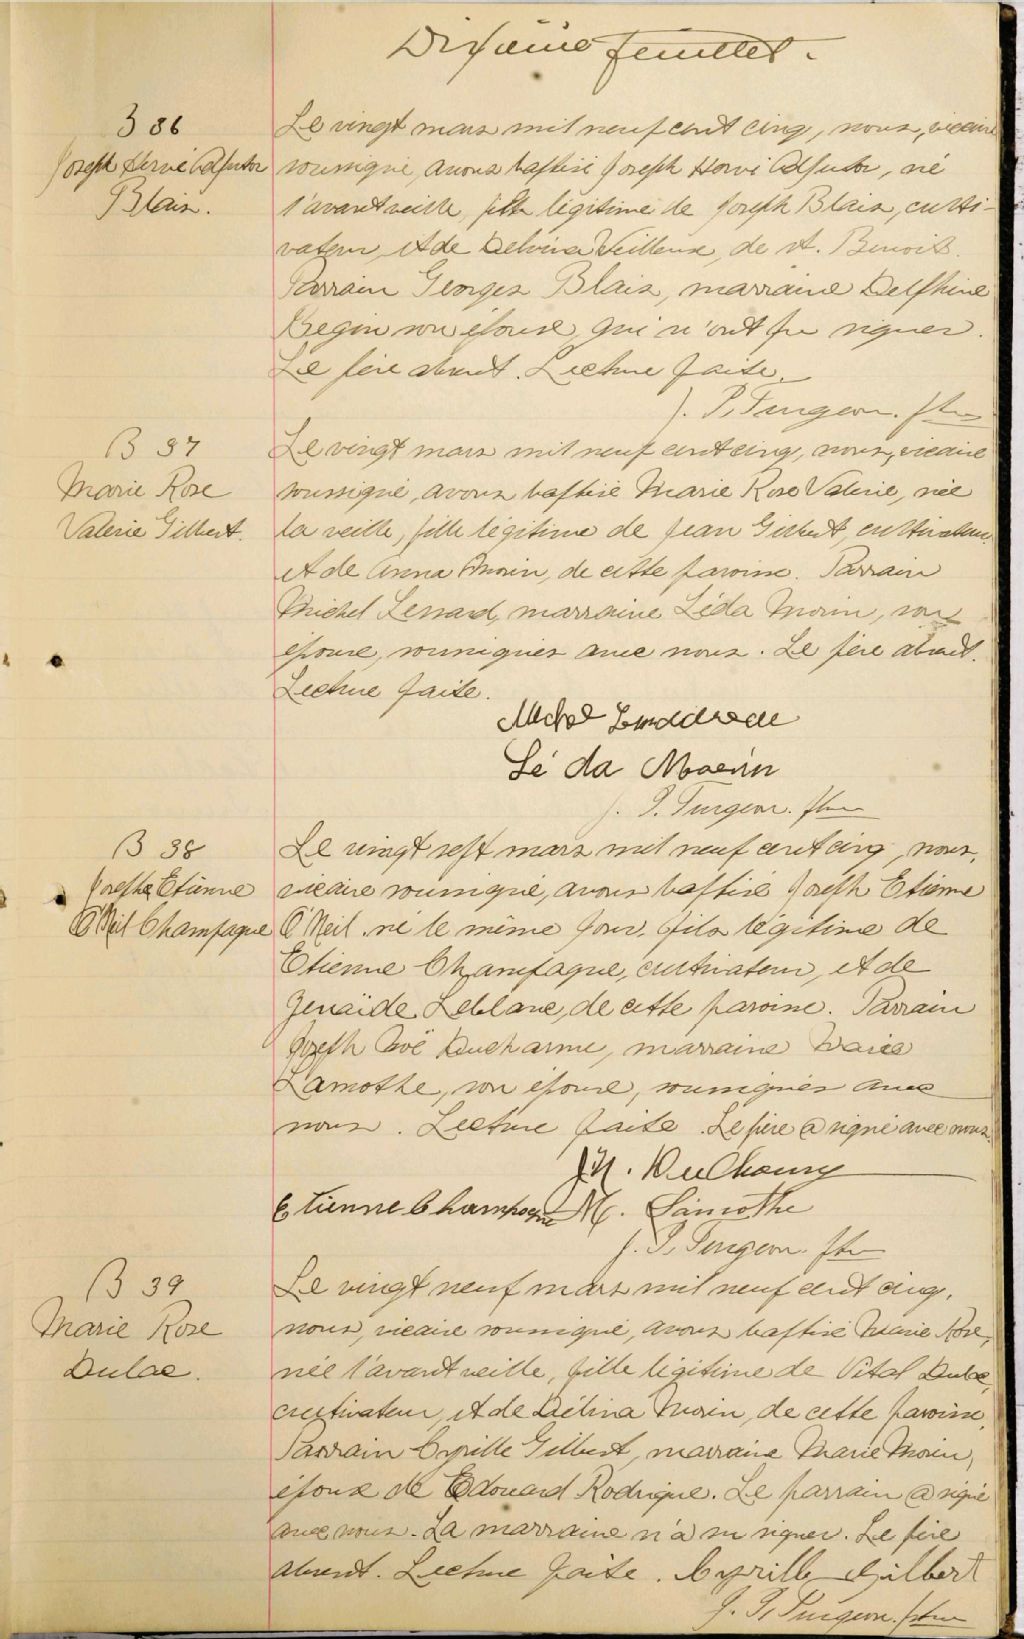 Dixième feuillet.
B 36
Joseph Hervé Adjutor
Blais.
Le vingt mars mil neuf cent cinq, nous, vicaire
soussigné, avons baptisé Joseph Hervé Adjutor, né
l'avant veille, fils légitime de Joseph Blais, culti-
vateur, et de Delvina Veilleux, de St. Benoit.
Parrain Georges Blais, marraine Delphine
Begin son épouse qui n'ont pu signer.
Le père absent. Lecture faite.
J. P. Turgeon. ptre
B 37
Marie Rose
Valerie Gilbert.
Le vingt mars mil neuf cent cinq, nous, vicaire
soussigné, avons baptisé Marie Rose Valerie, née
la veille, fille légitime de Jean Gilbert, cultivateur,
et de Anna Morin, de cette paroisse. Parrain
Michel Lessard, marraine Léda Morin, son
épouse, soussignés avec nous. Le père absent.
Lecture faite.
Michel
Lé da Moerin
J. P. Turgeon. ptre
B 38
Joseph Etienne
O'Neil Champagne
Le vingt sept mars mil neuf cent cinq, nous,
vicaire soussigné, avons baptisé Joseph Etienne
O'Neil. né le même jour, fils légitime de
Etienne Champagne, cultivateur, et de
Zenaïde Leblanc, de cette paroisse. Parrain
Joseph Noë Ducharme, marraine Maria
Lamothe, son épouse, soussignés avec
nous. Lecture faite. Le père a signé avec nous.
J N. DuCharme
Etienne Champagne M. Lamothe
J. P. Turgeon. ptre
B 39
Marie Rose
Dulac.
Le vingt neuf mars mil neuf cent cinq,
nous, vicaire soussigné, avons baptisé Marie Rose,
née l'avant veille, fille légitime de Vital Dulac,
cultivateur, et de Délina Morin, de cette paroisse.
Parrain Cyrille Gilbert, marraine Marie Morin,
épouse de Edouard Rodrigue. Le parrain a signé
avec nous. La marraine n'a su signer. Le père
absent. Lecture faite. Cyrille Gilbert
J. P. Turgeon. ptre